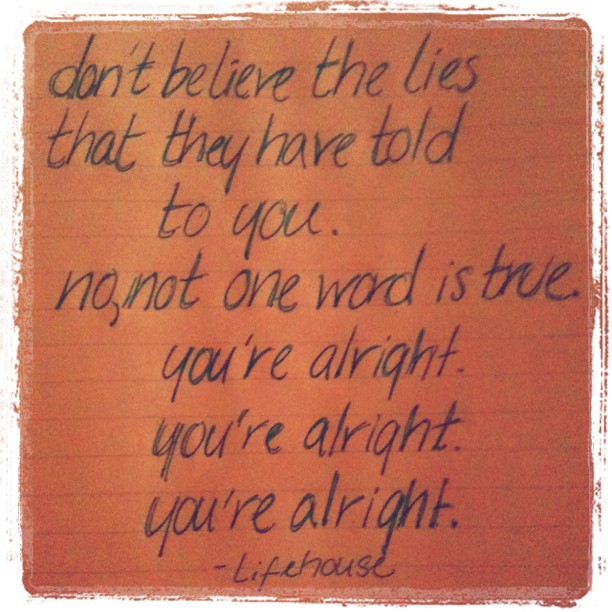 don't believe the lies
that they have told
to you.
no, not one word is true.
you're alright.
you're alright.
you're alright.
-Lifehouse